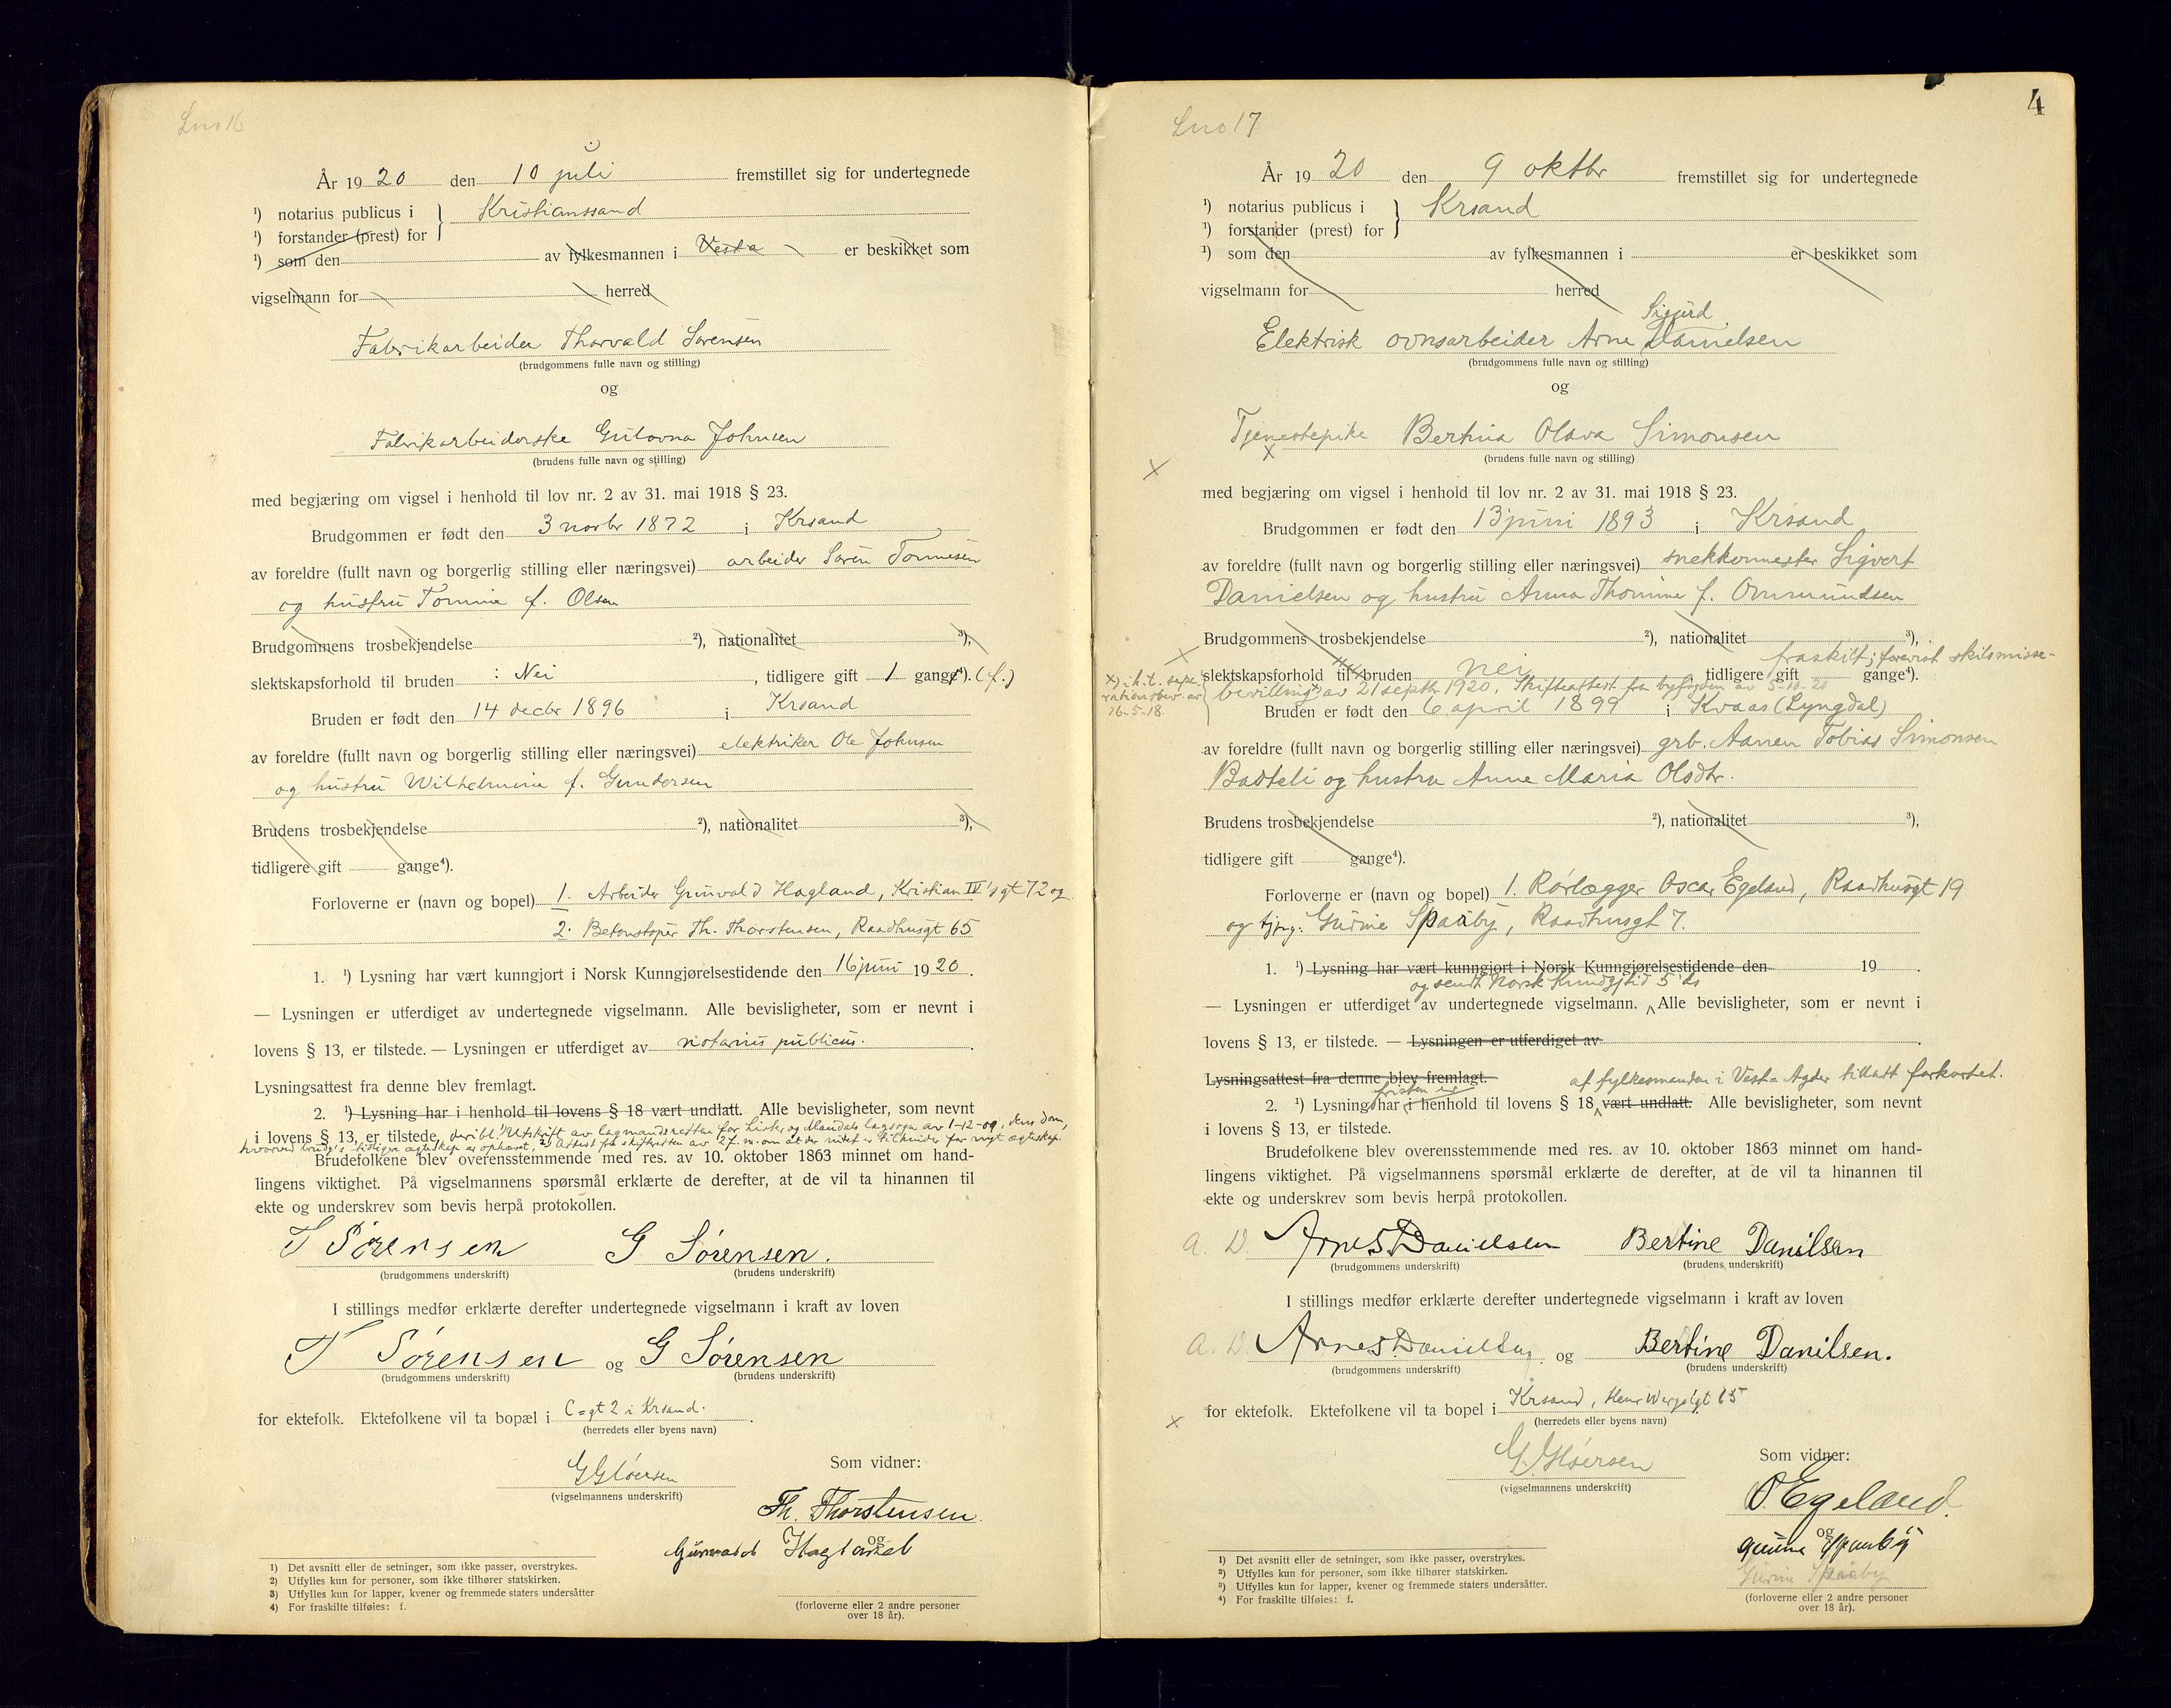 Lno 16
År 1920 den 10 juli fremstillet sig for undertegnede
¹) notarius publicus i } Kristianssand
¹) forstander (prest) for
¹) som den av fylkesmannen i Vesta er beskikket som
vigselmann for herred
Fabrikarbeider Thorvald Sørensen
(brudgommens fulle navn og stilling)
og
Fabrikarbeiderske Gulovna Johnsen
(brudens fulle navn og stilling)
med begjæring om vigsel i henhold til lov nr. 2 av 31. mai 1918 § 23.
Brudgommen er født den 3 novbr 1872 i Krsand
av foreldre (fullt navn og borgerlig stilling eller næringsvei) arbeider Søren Tønnesen
og hustru Tomine f. Olsen
Brudgommens trosbekjendelse ²), nationalitet ³),
slektskapsforhold til bruden : Nei, tidligere gift 1 gang⁴). (f.)
Bruden er født den 14 decbr 1896 i Krsand
av foreldre (fullt navn og borgerlig stilling eller næringsvei) elektriker Ole Johnsen
og hustru Wilhelmine f. Gundersen
Brudens trosbekjendelse ²), nationalitet ³),
tidligere gift gange⁴).
Forloverne er (navn og bopel) 1. Arbeider Gunvald Hagland, Kristian IV's gt 72 og
2. Betonstøper Th. Thorstensen, Raadhusgt 65
1. ¹) Lysning har vært kunngjort i Norsk Kunngjørelsestidende den 16 juni 1920.
— Lysningen er utferdiget av undertegnede vigselmann. Alle bevisligheter, som er nevnt i
lovens § 13, er tilstede. — Lysningen er utferdiget av notarius publicus.
Lysningsattest fra denne blev fremlagt.
2. ¹) Lysning har i henhold til lovens § 18 vært undlatt. Alle bevisligheter, som nevnt
i lovens § 13, er tilstede, deribl. 1) Utskrift av lagmandsretten for Lister og Mandals lagsogn av 1-12-09, dens dom,
hvorved brudg's tidligere ægteskap er ophævet, 2) Attest fra skifteretten av 2 f. m. om at der intet er til hinder for nyt ægteskap.
Brudefolkene blev overensstemmende med res. av 10. oktober 1863 minnet om hand-
lingens viktighet. På vigselmannens spørsmål erklærte de derefter, at de vil ta hinannen til
ekte og underskrev som bevis herpå protokollen.
T Sørensen G Sørensen.
(brudgommens underskrift) (brudens underskrift)
I stillings medfør erklærte derefter undertegnede vigselmann i kraft av loven
T Sørensen og G Sørensen
(brudgommens underskrift) (brudens underskrift)
for ektefolk. Ektefolkene vil ta bopæl i C=gt 2 i Krsand.
(herredets eller byens navn)
G Gløersen Som vidner:
(vigselmannens underskrift)
Th. Thorstensen.
og
Gunvald Hagland
1) Det avsnitt eller de setninger, som ikke passer, overstrykes.
2) Utfylles kun for personer, som ikke tilhører statskirken.
3) Utfylles kun for lapper, kvener og fremmede staters undersåtter
4) For fraskilte tilføies: f.
(forloverne eller 2 andre personer
over 18 år).
4
Lno 17
År 1920 den 9 oktbr fremstillet sig for undertegnede
¹) notarius publicus i } Krsand
¹) forstander (prest) for
¹) som den av fylkesmannen i er beskikket som
vigselmann for herred
Sigurd
Elektrisk ovnsarbeider Arne Danielsen
(brudgommens fulle navn og stilling)
og
Tjenestepike Bertina Olava Simonsen
x (brudens fulle navn og stilling)
x
med begjæring om vigsel i henhold til lov nr. 2 av 31. mai 1918 § 23.
Brudgommen er født den 13 juni 1893 i Krsand
av foreldre (fullt navn og borgerlig stilling eller næringsvei) snekkermester Sigvert
Danielsen og hustru Anna Thomine f. Ommundsen
Brudgommens trosbekjendelse ²), nationalitet ³),
fraskilt; forevist skilsmisse-
slektskapsforhold til bruden nei tidligere gift gange⁴).
x) i h. t. sepa-
rationsbev. av
16-5-18
bevilling x) av 21 septbr 1920. Skifteattest fra byfogden av 5-10-20
Bruden er født den 6 april 1899 i Kvaas (Lyngdal)
av foreldre (fullt navn og borgerlig stilling eller næringsvei) grb. Aanen Tobias Simonsen
Badteli og hustru Anne Maria Olsdtr.
Brudens trosbekjendelse ²), nationalitet ³),
tidligere gift gange⁴).
Forloverne er (navn og bopel) 1. Rørlægger Oscar Egeland, Raadhusgt 19
og tjpg: Gurine Spaaby, Raadhusgt 7.
1. ¹) Lysning har vært kunngjort i Norsk Kunngjørelsestidende den 19 .
og sendt Norsk Kundgjtid 5 ds
— Lysningen er utferdiget av undertegnede vigselmann. Alle bevisligheter, som er nevnt i
lovens § 13, er tilstede. — Lysningen er utferdiget av .
Lysningsattest fra denne blev fremlagt. af fylkesmanden i Vest=Agder tillatt forkortet.
fristen er
2. ¹) Lysning har i henhold til lovens § 18 vært undlatt. Alle bevisligheter, som nevnt
i lovens § 13, er tilstede.
Brudefolkene blev overensstemmende med res. av 10. oktober 1863 minnet om hand-
lingens viktighet. På vigselmannens spørsmål erklærte de derefter, at de vil ta hinannen til
ekte og underskrev som bevis herpå protokollen.
A. D. Arne S Danielsen Bertine Danilsen
(brudgommens underskrift) (brudens underskrift)
I stillings medfør erklærte derefter undertegnede vigselmann i kraft av loven
A. D. Arne S Danielsen og Bertine Danilsen.
(brudgommens underskrift) (brudens underskrift)
x for ektefolk. Ektefolkene vil ta bopel i Krsand, Henr Wergelgt 65
(herredets eller byens navn)
G Gløersen Som vidner:
(vigselmannens underskrift)
O Egeland.
og
Gurine Spaaby
Gurine Spaaby
1) Det avsnitt eller de setninger, som ikke passer, overstrykes.
2) Utfylles kun for personer, som ikke tilhører statskirken.
3) Utfylles kun for lapper, kvener og fremmede staters undersåtter.
4) For fraskilte tilføies: f.
(forloverne eller 2 andre personer
over 18 år).